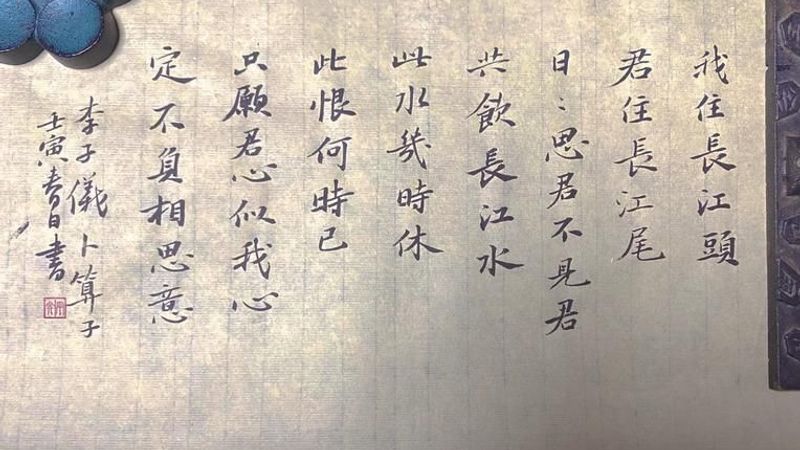 我住長江頭
君住長江尾
日〻思君不見君
共飲長江水
此水幾時休
此恨何時已
只願君心似我心
定不負相思意
李子儀卜算子
壬寅春日書